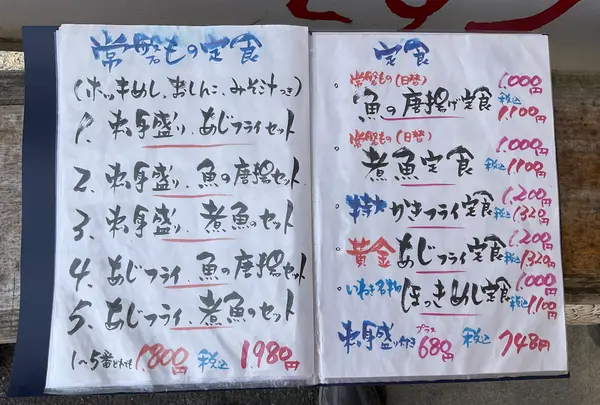 常磐もの定食
(ホッキめし、おしんこ、みそ汁つき)
1、刺身盛り、あじフライセット
2、刺身盛り、魚の唐揚セット
3、刺身盛り、煮魚のセット
4、あじフライ、魚の唐揚セット
5、あじフライ、煮魚のセット
1〜5番どれでも 1,800円 税込 1,980円
定食
常磐もの(日替) 1,000円
魚の唐揚げ定食 税込 1,100円
常磐もの(日替) 1,000円
煮魚定食 税込 1,100円
特大かきフライ定食 1,200円 税込 1,320円
黄金あじフライ定食 1,200円 税込 1,320円
いわき名物ほっきめし定食 1,000円 税込 1,100円
刺身盛り付き プラス 680円 税込 748円